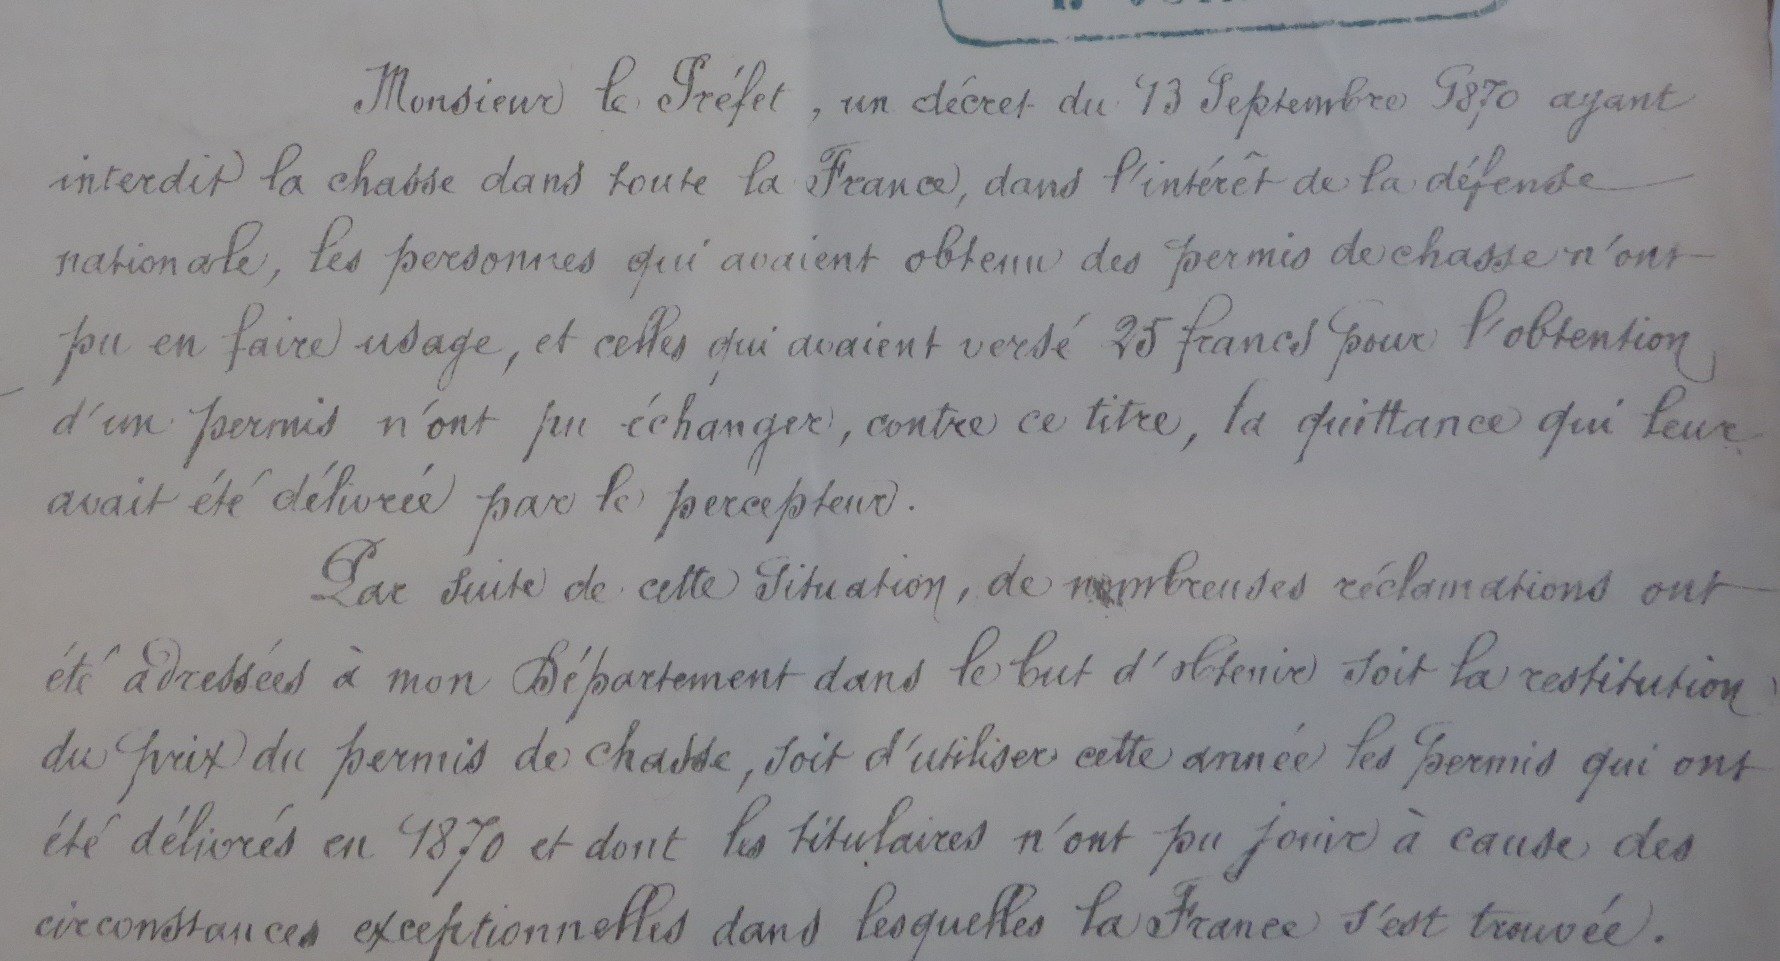 Monsieur le Préfet, un décret du 13 Septembre 1870 ayant
interdit la chasse dans toute la France, dans l'intérêt de la défense
nationale, les personnes qui avaient obtenu des permis de chasse n'ont
pu en faire usage, et celles qui avaient versé 25 francs pour l'obtention
d'un permis n'ont pu échanger, contre ce titre, la quittance qui leur
avait été délivrée par le percepteur.
Par suite de cette situation, de nombreuses réclamations ont
été adressées à mon Département dans le but d'obtenir soit la restitution
du prix du permis de chasse, soit d'utiliser cette année les permis qui ont
été délivrés en 1870 et dont les titulaires n'ont pu jouir à cause des
circonstances exceptionnelles dans lesquelles la France s'est trouvée.